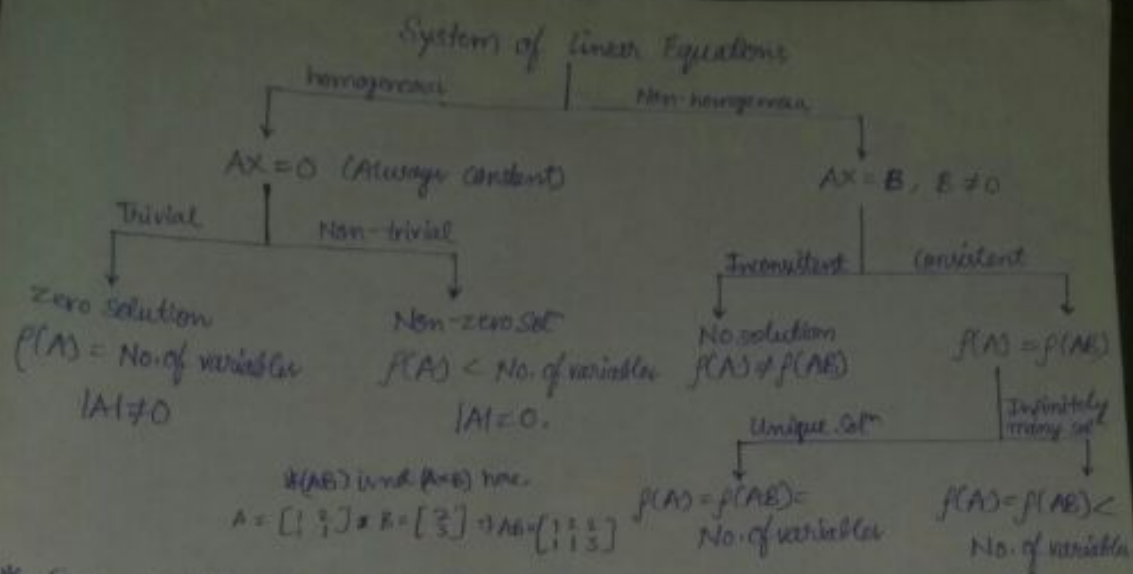 System of Linear Equations
homogeneous
Non-homogeneous
AX = 0 (Always consistent)
AX = B, B ≠ 0
Trivial
Non-trivial
Inconsistent
Consistent
Zero solution
ρ(A) = No. of variables
|A| ≠ 0
Non-zero Solⁿ
ρ(A) < No. of variables
|A| = 0.
No solution
ρ(A) ≠ ρ(AB)
ρ(A) = ρ(AB)
Unique Solⁿ
Infinitely
many solⁿ
*(AB) is not (A×B) here.
ρ(A) = ρ(AB) =
No. of variables
ρ(A) = ρ(AB) <
No. of variables